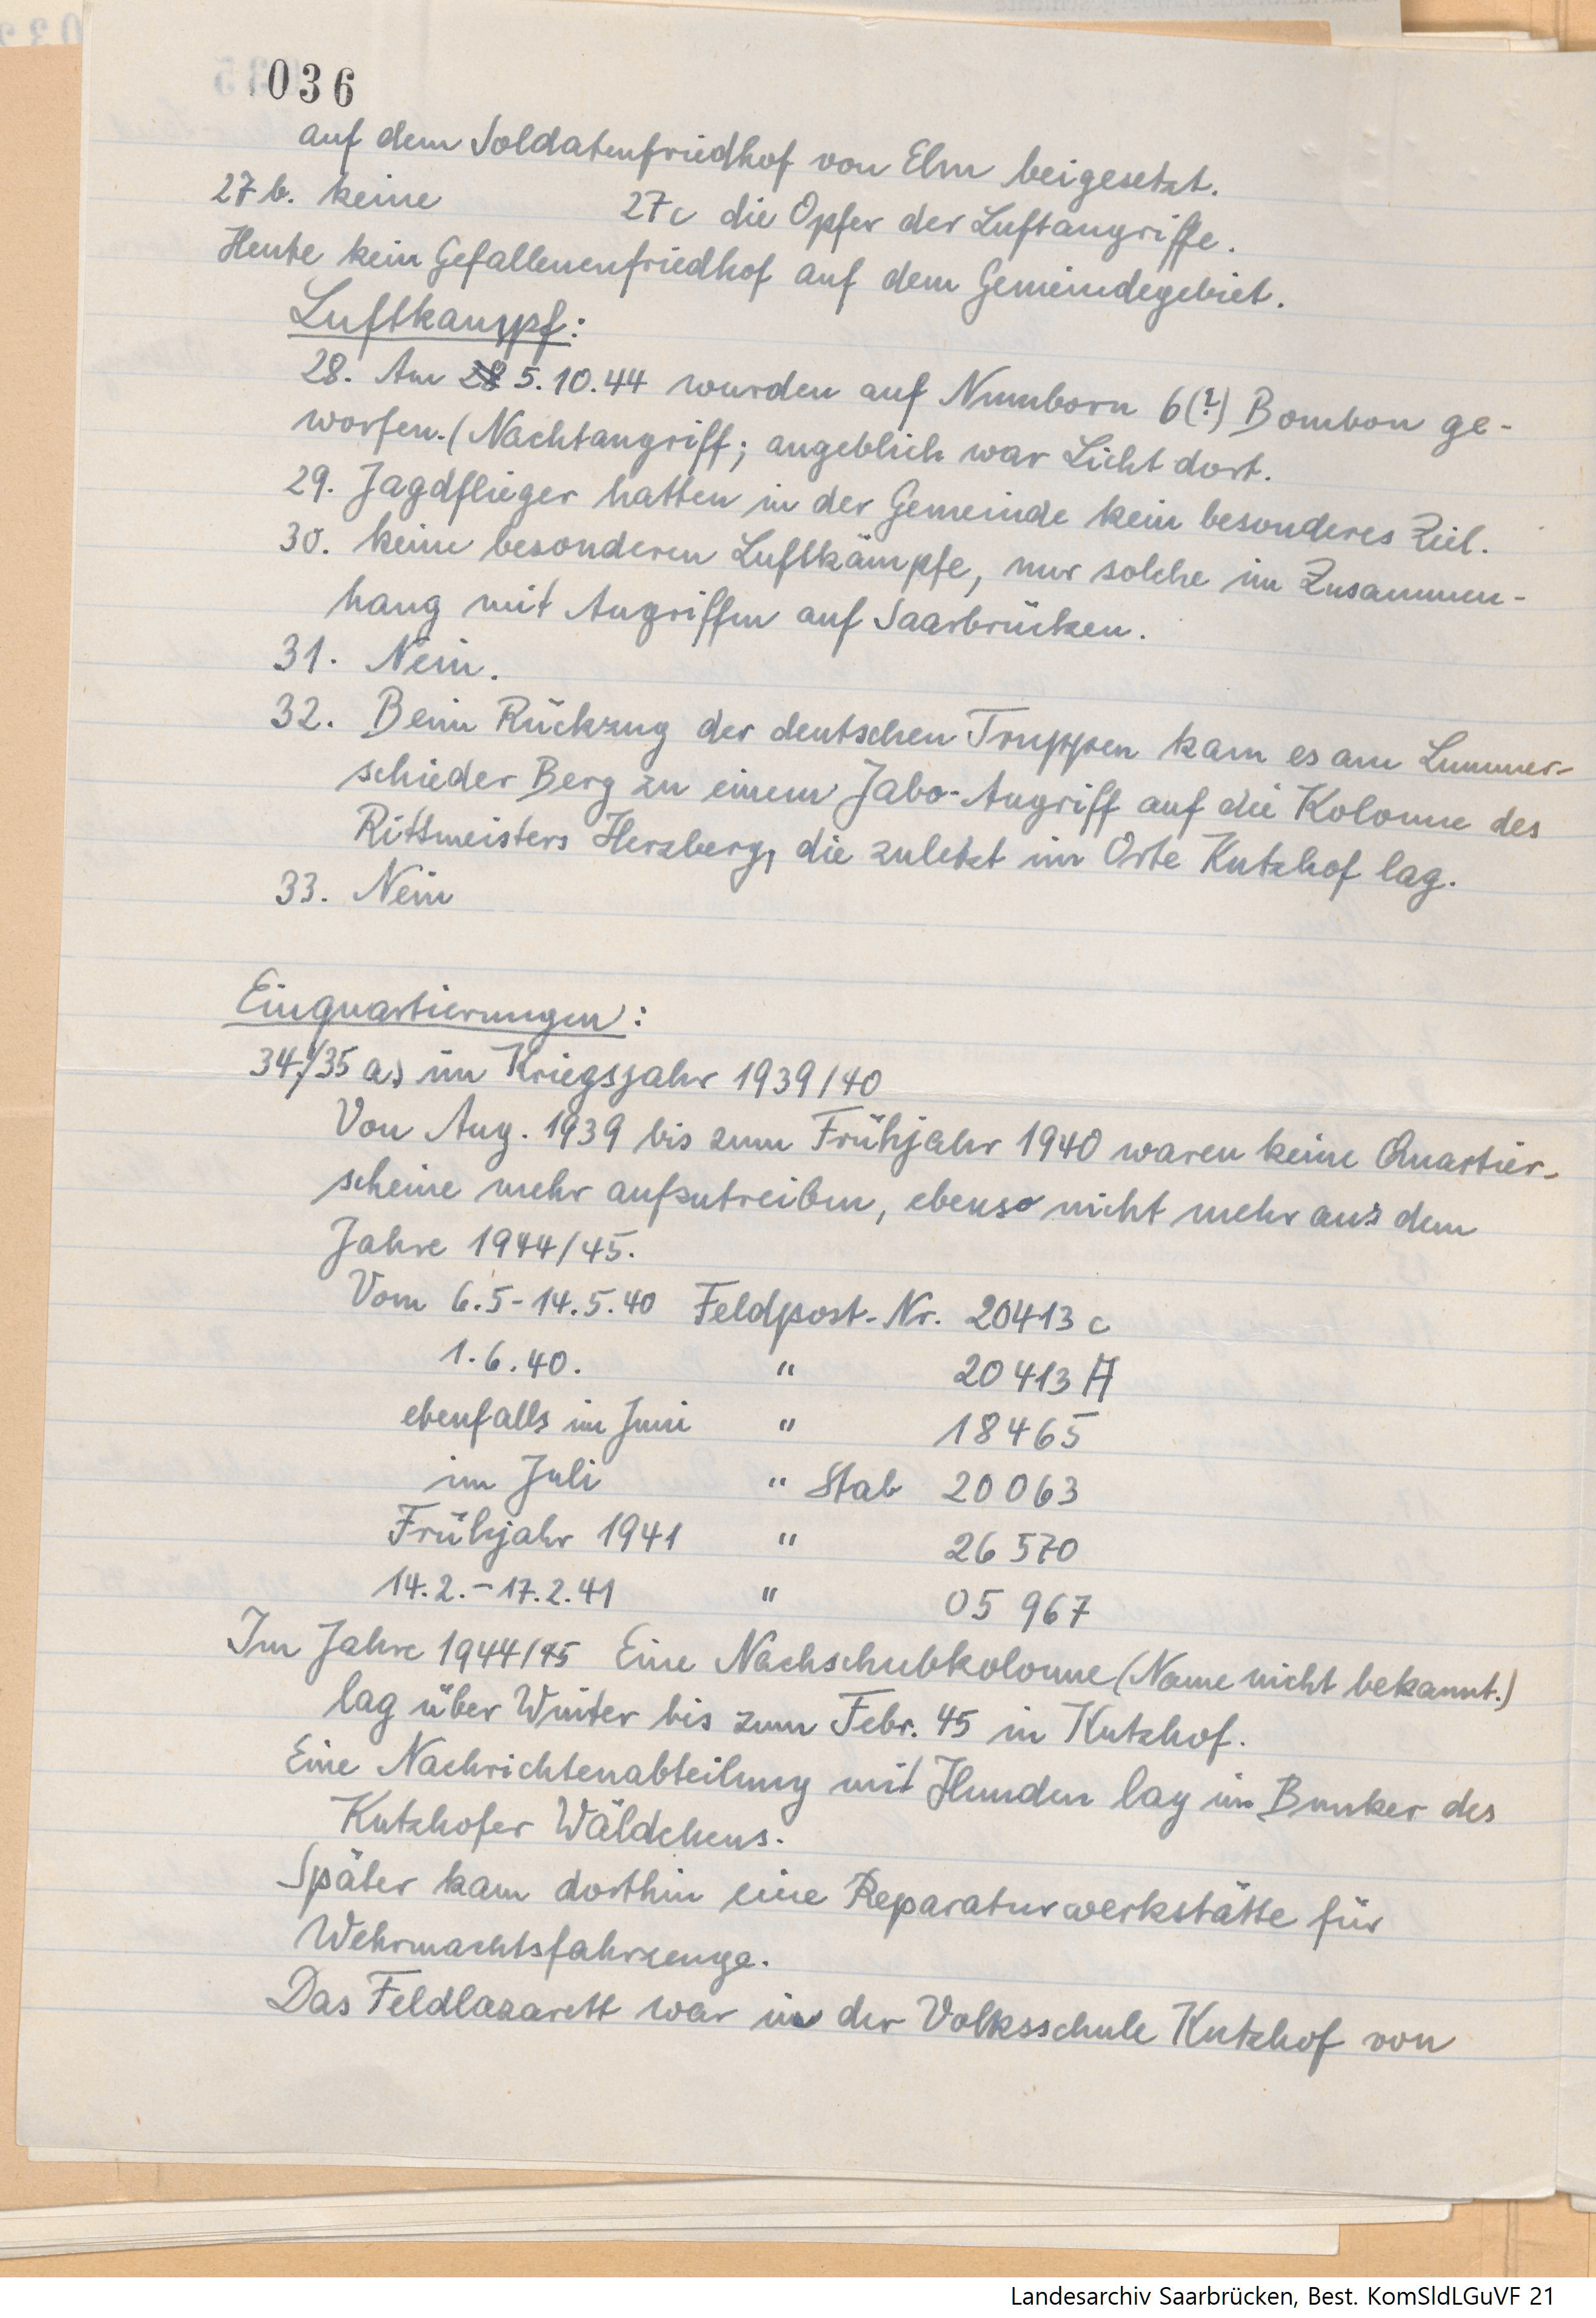 036
auf dem Soldatenfriedhof von Elm beigesetzt.
27 b. keine 27c die Opfer der Luftangriffe.
Heute kein Gefallenenfriedhof auf dem Gemeindegebiet.
Luftkampf:
28. Am 28 5.10.44 wurden auf Numborn 6(?) Bomben ge-
worfen. (Nachtangriff; angeblich war Licht dort.
29. Jagdflieger hatten in der Gemeinde kein besonderes Ziel.
30. keine besonderen Luftkämpfe, nur solche im Zusammen-
hang mit Angriffen auf Saarbrücken.
31. Nein.
32. Beim Rückzug der deutschen Truppen kam es am Lummer-
schieder Berg zu einem Jabo-Angriff auf die Kolonne des
Rittmeisters Herzberg, die zuletzt im Orte Kutzhof lag.
33. Nein
Einquartierungen:
34./35 a) im Kriegsjahr 1939/40
Von Aug. 1939 bis zum Frühjahr 1940 waren keine Quartier-
scheine mehr aufzutreiben, ebenso nicht mehr aus dem
Jahre 1944/45.
Vom 6.5-14.5.40 Feldpost-Nr. 20413 c
1.6.40. " 20413 A
ebenfalls im Juni " 18465
im Juli " Stab 20063
Frühjahr 1941 " 26 570
14.2.-17.2.41 " 05 967
Im Jahre 1944/45 Eine Nachschubkolonne (Name nicht bekannt.)
lag über Winter bis zum Febr. 45 in Kutzhof.
Eine Nachrichtenabteilung mit Hunden lag im Bunker des
Kutzhofer Wäldchens.
Später kam dorthin eine Reparaturwerkstätte für
Wehrmachtsfahrzeuge.
Das Feldlazarett war in der Volksschule Kutzhof von
Landesarchiv Saarbrücken, Best. KomSldLGuVF 21